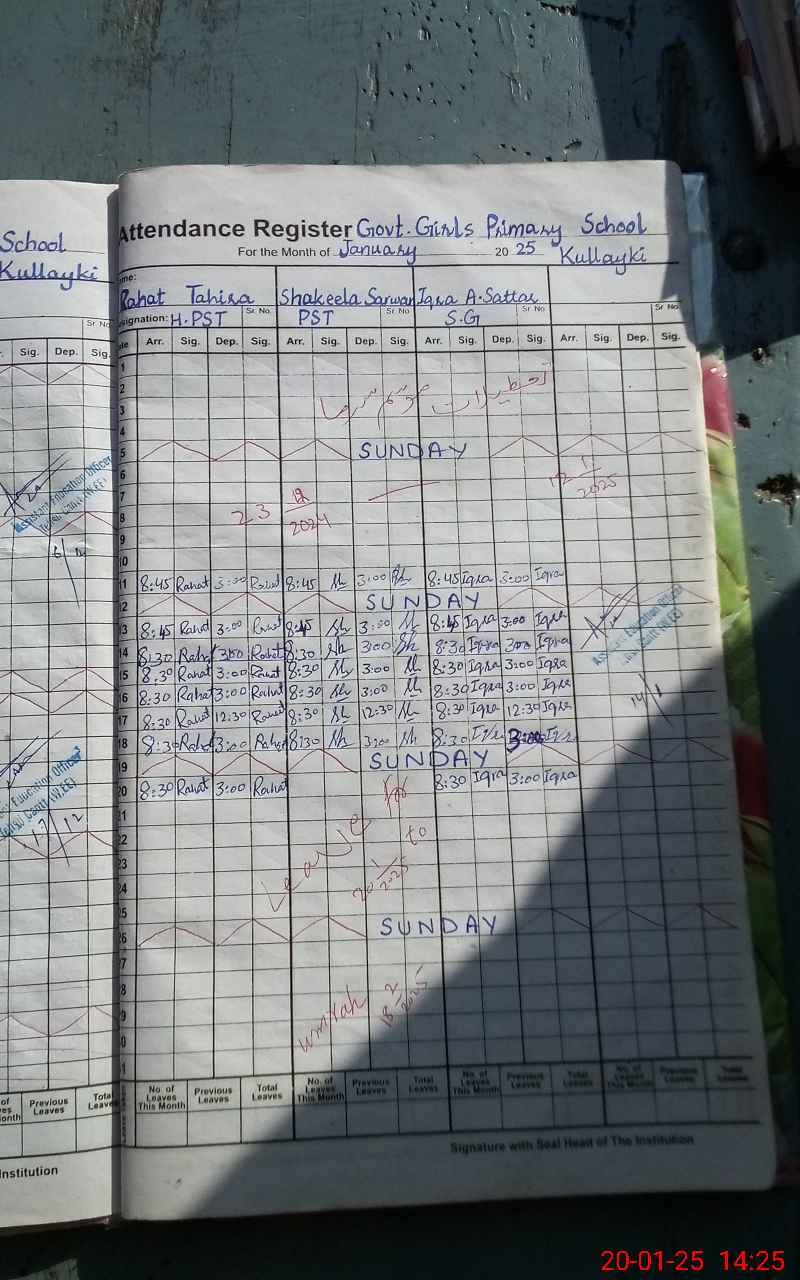 School
Kullayki
Attendance Register Govt. Girls Primary School
For the Month of January 2025 Kullayki
Name:
Rahat Tahira Shakeela Sarwar Iqra A.Sattar
Designation: H.PST Sr No. PST Sr No. S.G Sr No. Sr No.
Sig. Dep. Sig.
Date Arr. Sig. Dep. Sig. Arr. Sig. Dep. Sig. Arr. Sig. Dep. Sig. Arr. Sig. Dep. Sig.
1
2 تعطیلات موسم سرما
3
4
5 SUNDAY
6
7
8 23 12/2024 — 12 1/2025
9
10
11 8:45 Rahat 3:00 Rahat 8:45 Sh 3:00 Sh 8:45 Iqra 3:00 Iqra
12 SUNDAY
13 8:45 Rahat 3:00 Rahat 8:45 Sh 3:00 Sh 8:45 Iqra 3:00 Iqra
14 8:30 Rahat 3:00 Rahat 8:30 Sh 3:00 Sh 8:30 Iqra 3:00 Iqra
15 8:30 Rahat 3:00 Rahat 8:30 Sh 3:00 Sh 8:30 Iqra 3:00 Iqra
16 8:30 Rahat 3:00 Rahat 8:30 Sh 3:00 Sh 8:30 Iqra 3:00 Iqra
17 8:30 Rahat 12:30 Rahat 8:30 Sh 12:30 Sh 8:30 Iqra 12:30 Iqra
18 8:30 Rahat 3:00 Rahat 8:30 Sh 3:00 Sh 8:30 Iqra 3:00 Iqra
19 SUNDAY
20 8:30 Rahat 3:00 Rahat 8:30 Iqra 3:00 Iqra
21
22 Leave for
23 20 1/2025 to
24
25
26 SUNDAY
27
28
29 umrah 18 2/2025
30
31
Assistant Education Officer
6/12
Assistant Education Officer
14/1
Education Officer
17/12
No. of Leaves This Month Previous Leaves Total Leaves No. of Leaves This Month Previous Leaves Total Leaves No. of Leaves This Month Previous Leaves Total Leaves No. of Leaves This Month Previous Leaves Total Leaves
Previous Leaves Total Leaves
Signature with Seal Head of The Institution
Institution
20-01-25 14:25